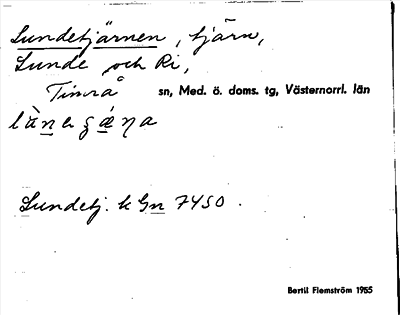 Lundetjärnen, tjärn,
Lunde och Ri,
Timrå sn, Med. ö. doms. tg, Västernorrl. län
Lundetj. k Gn 7450.
Bertil Flemström 1955